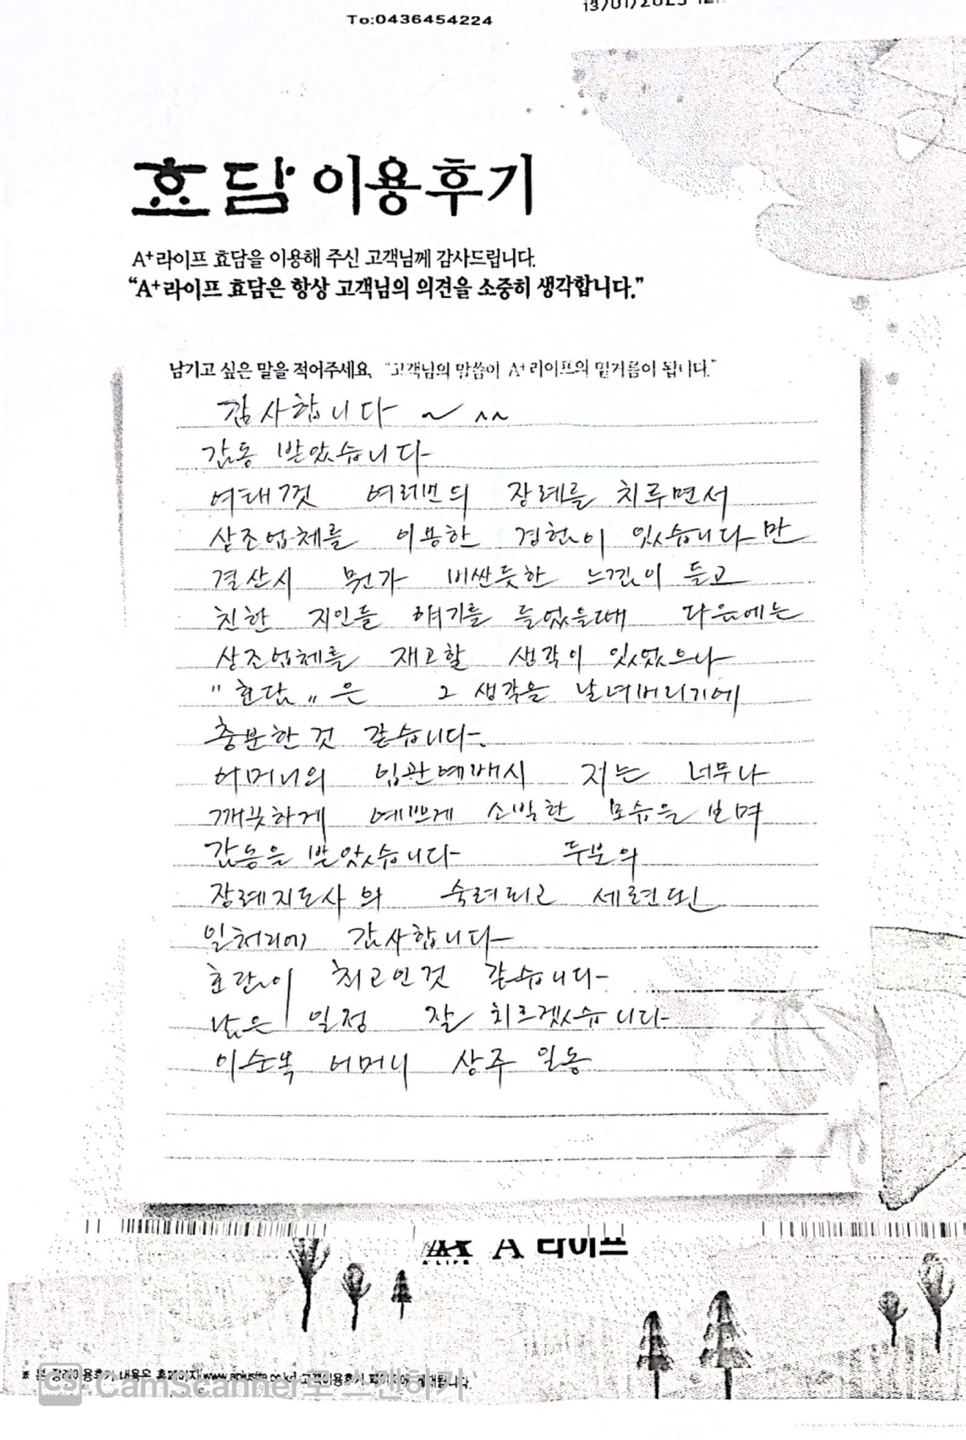 To:0436454224
효담 이용후기
A⁺라이프 효담을 이용해 주신 고객님께 감사드립니다.
“A⁺라이프 효담은 항상 고객님의 의견을 소중히 생각합니다.”
남기고 싶은 말을 적어주세요. “고객님의 말씀이 A⁺라이프의 밑거름이 됩니다.”
감사합니다 ~ ^^
감동 받았습니다
여태껏 여러번의 장례를 치루면서
상조업체를 이용한 경험이 있습니다만
결산시 뭔가 비싼듯한 느낌이 들고
친한 지인들 얘기를 들었을때 다음에는
상조업체를 재고할 생각이 있었으나
"효담" 은 그 생각을 날려버리기에
충분한것 같습니다.
어머니의 입관예배시 저는 너무나
깨끗하게 예쁘게 소박한 모습을 보며
감동을 받았습니다 두분의
장례지도사의 숙련되고 세련된
일처리에 감사합니다
효담이 최고인것 같습니다
남은 일정 잘 치르겠습니다
이순복 어머니 상주 일동
A LIFE A 라이프
※ 본 장례이용후기 내용은 홈페이지 고객이용후기
CS CamScanner로 스캔하기